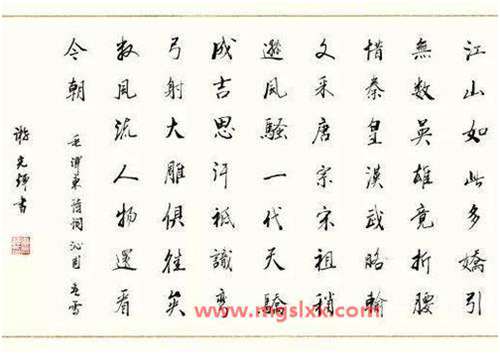 江山如此多嬌引
無數英雄竟折腰
惜秦皇漢武略輸
文采唐宗宋祖稍
遜風騷一代天驕
成吉思汗祗識彎
弓射大雕俱往矣
数風流人物還看
今朝
毛澤東詩詞沁園春雪
光輝書
www.mgslxx.com